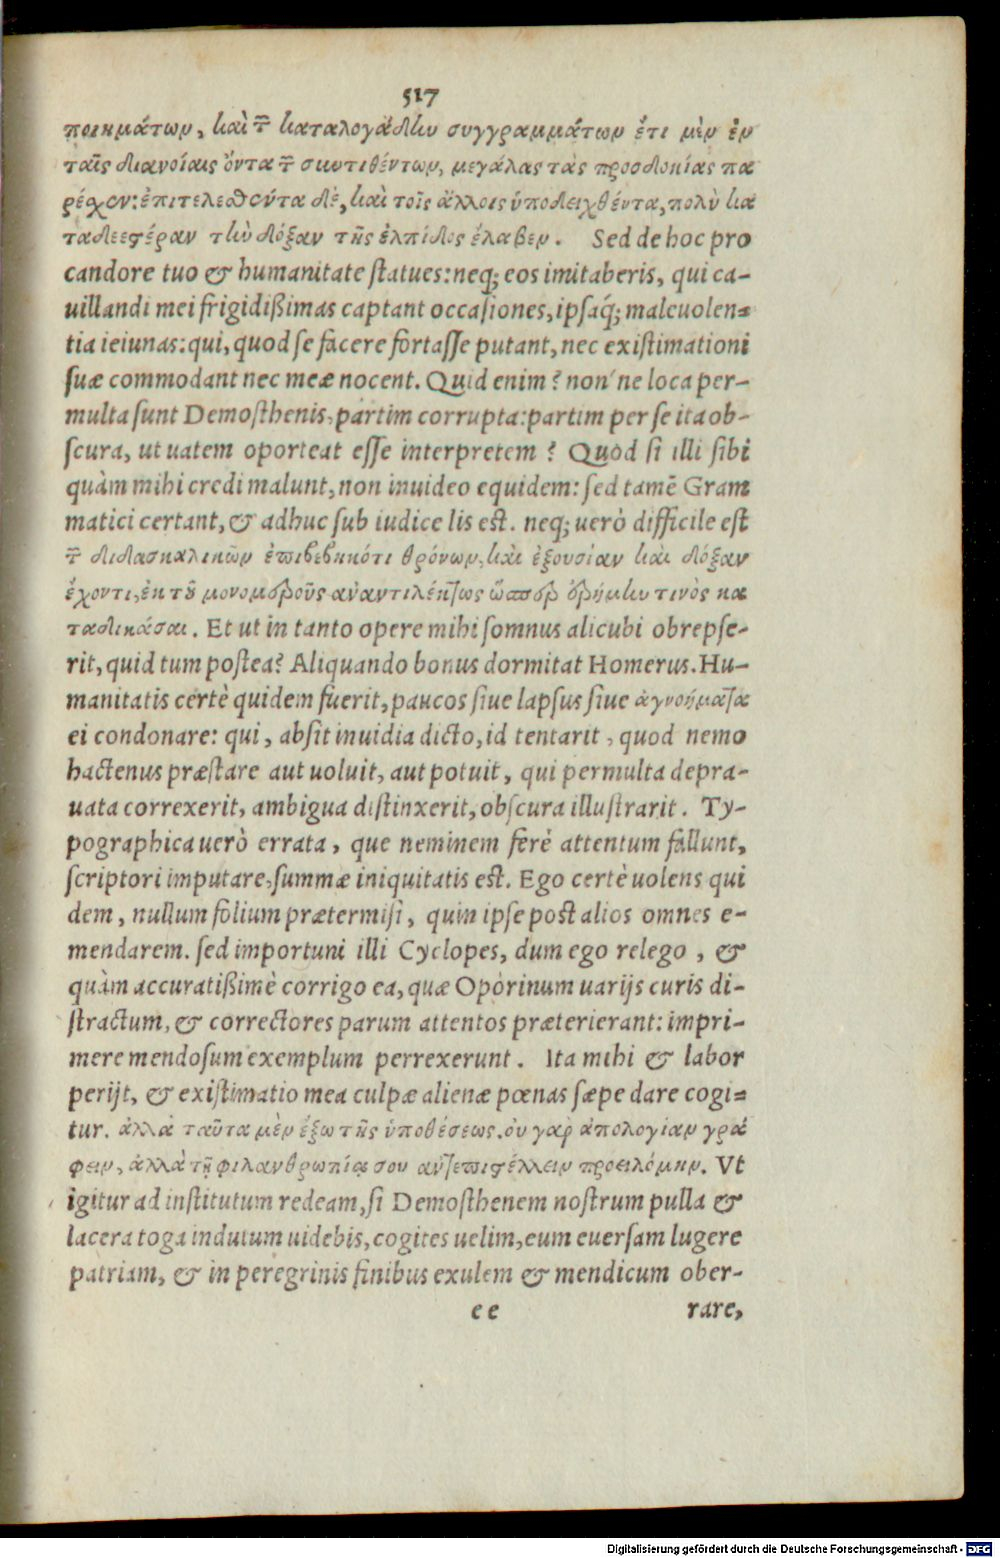 517
ποιημάτων, καὶ τ͂ καταλογάδην συγγραμμάτων ἔτι μὲν ἐν
ταῖς διανοίαις ὄντα τ͂ σιωτιθέντων, μεγάλας τὰς προσδοκίας πα
ρέχον: ἐπιτελεσθέντα δὲ, καὶ τοῖς ἄλλοις ὑποδειχθέντα, πολὺ κα
ταδεεστέραν τὴν δόξαν τῆς ἐλπίδος ἔλαβεν. Sed de hoc pro
candore tuo & humanitate statues: neq; eos imitaberis, qui ca-
uillandi mei frigidißimas captant occasiones, ipsaq́; maleuolen=
tia ieiunas: qui, quod se facere fortasse putant, nec existimationi
suæ commodant nec meæ nocent. Quid enim? non'ne loca per-
multa sunt Demosthenis, partim corrupta: partim per se ita ob-
scura, ut uatem oporteat esse interpretem? Quòd si illi sibi
quàm mihi credi malunt, non inuideo equidem: sed tamẽ Gram
matici certant, & adhuc sub iudice lis est. neq; uerò difficile est
τ͂ διδασκαλικῶν ἐπιβεβηκότι θρόνων, καὶ ἐξουσίαν καὶ δόξαν
ἔχοντι, ἐκ τ͂ μονομεροῦς ἀναντιλέκτως ὥσπερ ἐρήμην τινὸς κα
ταδικάσαι. Et ut in tanto opere mihi somnus alicubi obrepse-
rit, quid tum postea? Aliquando bonus dormitat Homerus. Hu-
manitatis certè quidem fuerit, paucos siue lapsus siue ἀγνοήματα
ei condonare: qui, absit inuidia dicto, id tentarit, quod nemo
hactenus præstare aut uoluit, aut potuit, qui permulta depra-
uata correxerit, ambigua distinxerit, obscura illustrarit. Ty-
pographica uerò errata, que neminem ferè attentum fallunt,
scriptori imputare, summæ iniquitatis est. Ego certè uolens qui
dem, nullum folium prætermisi, quin ipse post alios omnes e-
mendarem. sed importuni illi Cyclopes, dum ego relego, &
quàm accuratißimè corrigo ea, quæ Oporinum uarijs curis di-
stractum, & correctores parum attentos præterierant: impri-
mere mendosum exemplum perrexerunt. Ita mihi & labor
perijt, & existimatio mea culpæ alienæ pœnas sæpe dare cogi=
tur. ἀλλὰ ταῦτα μὲν ἔξω τῆς ὑποθέσεως. οὐ γὰρ ἀπολογίαν γρά
φειν, ἀλλὰ τῇ φιλανθρωπίᾳ σου ἀντεπιστέλλειν προειλόμην. Vt
igitur ad institutum redeam, si Demosthenem nostrum pulla &
lacera toga indutum uidebis, cogites uelim, eum euersam lugere
patriam, & in peregrinis finibus exulem & mendicum ober-
ee rare,
Digitalisierung gefördert durch die Deutsche Forschungsgemeinschaft - DFG